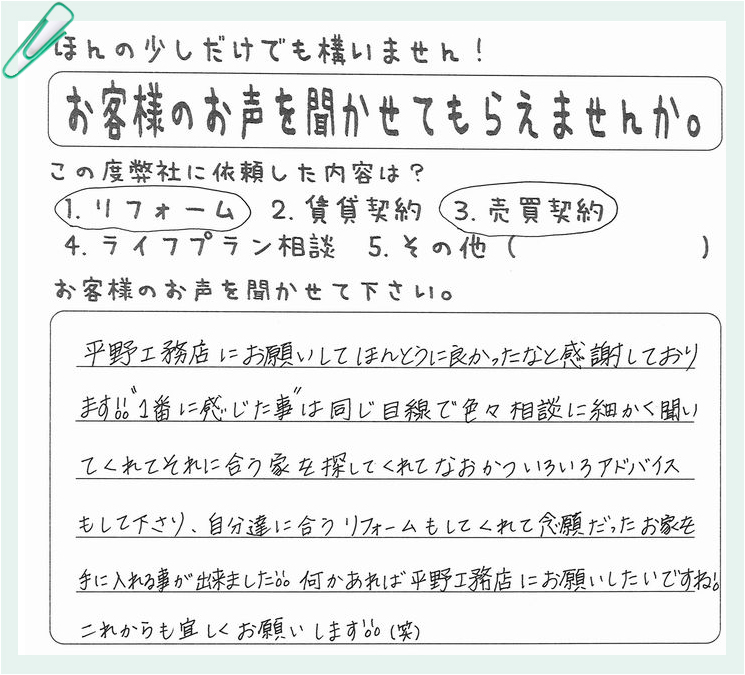 ほんの少しだけでも構いません！
お客様のお声を聞かせてもらえませんか。
この度弊社に依頼した内容は？
1. リフォーム　2. 賃貸契約　3. 売買契約
4. ライフプラン相談　5. その他（　　　　　　）
お客様のお声を聞かせて下さい。
平野工務店にお願いしてほんとうに良かったなと感謝しており
ます!!"1番に感じた事"は同じ目線で色々相談に細かく聞い
てくれてそれに合う家を探してくれてなおかついろいろアドバイス
もして下さり、自分達に合うリフォームもしてくれて念願だったお家を
手に入れる事が出来ました!!何かあれば平野工務店にお願いしたいですね!!
これからも宜しくお願いします!!(笑)